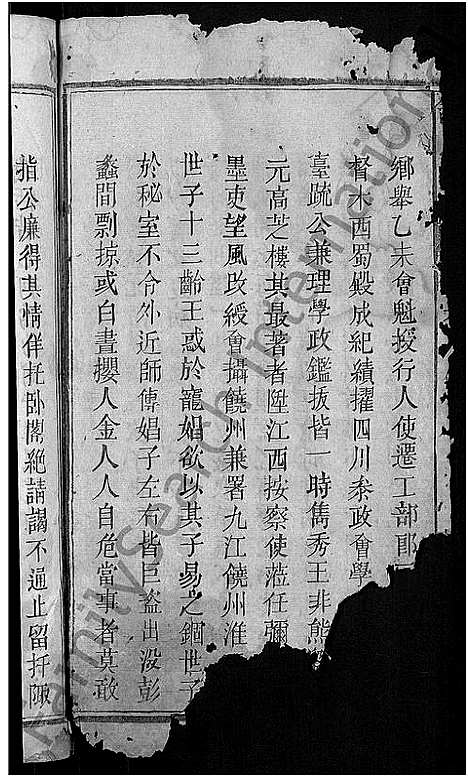 鄉舉乙未會魁授行人使遷工部郎
督木西蜀殿成紀績擢四川叅政會學
臺疏公兼理學政鑑拔皆一時雋秀王非熊
元高芝樓其最著者陞江西按察使蒞任彌
墨吏望風改綬會攝饒州兼署九江饒州淮
世子十三齡王惑於寵娼欲以其子易之錮世子
於秘室不令外近師傅娼子左右皆巨盜出没彭
蠡間剽掠或白晝攫人金人人自危當事者莫敢
指公廉得其情佯托卧閣絶請謁不逼止留扦陬
FamilySearch International